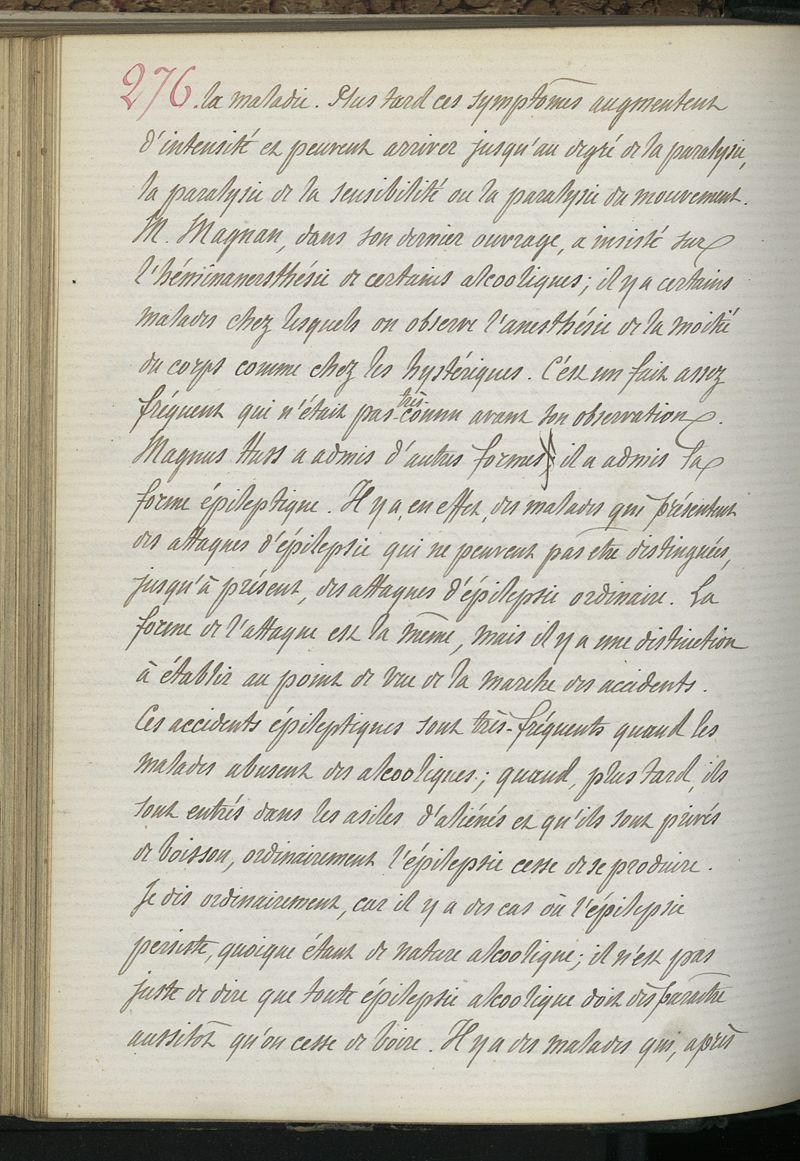 276. la maladie. Plus tard ces symptômes augmentent
d'intensité et peuvent arriver jusqu'au degré de la paralysie,
la paralysie de la sensibilité ou la paralysie du mouvement.
M. Magnan, dans son dernier ouvrage, a insisté sur
l'hémianesthésie de certains alcooliques; il y a certains
malades chez lesquels on observe l'anesthésie de la moitié
du corps comme chez les hystériques. C'est un fait assez
fréquent qui n'était pas très-connu avant son observation.
Magnus Huss a admis d'autres formes; il a admis la
forme épileptique. Il y a, en effet, des malades qui présentent
des attaques d'épilepsie qui ne peuvent pas être distinguées,
jusqu'à présent, des attaques d'épilepsie ordinaire. La
forme de l'attaque est la même, mais il y a une distinction
à établir au point de vue de la marche des accidents.
Ces accidents épileptiques sont très-fréquents quand les
malades abusent des alcooliques; quand, plus tard, ils
sont entrés dans les asiles d'aliénés et qu'ils sont privés
de boisson, ordinairement l'épilepsie cesse de se produire.
Je dis ordinairement, car il y a des cas où l'épilepsie
persiste, quoique étant de nature alcoolique; il n'est pas
juste de dire que toute épilepsie alcoolique doit disparaître
aussitôt qu'on cesse de boire. Il y a des malades qui, après